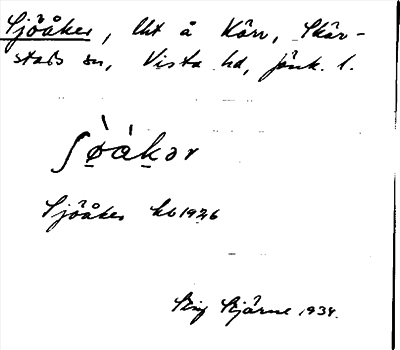 Sjöåker, lht å Kärr, Skär-
stads sn, Vista hd, Jönk. l.
ʃø̀ákər
Sjöåker hb 1926
Stig Stjärne 1934.